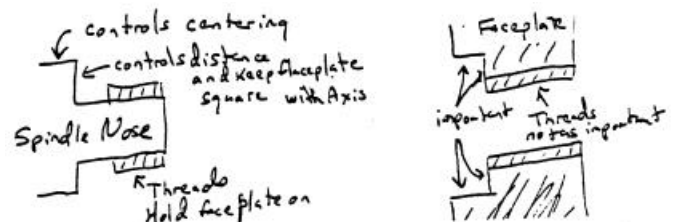 controls centering
controls distance
and keep faceplate
square with Axis
Spindle Nose
Threads
Hold faceplate on
Faceplate
important
Threads
not as important